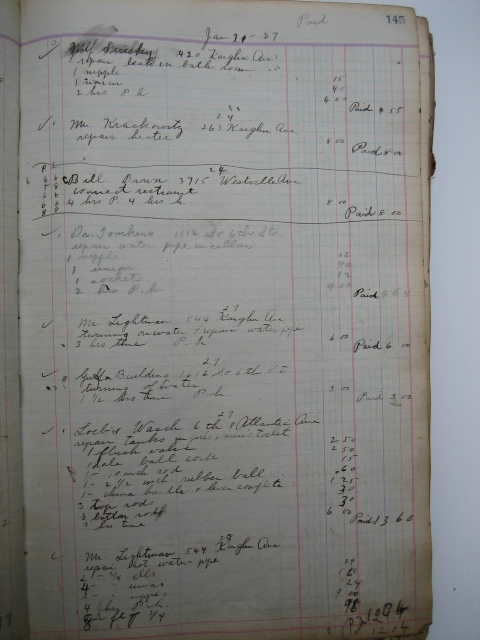 Paid 145
Jan 20-27
420 Kaighn Ave
repair leak in bath room
1 nipple 15
1 union 40
2 hrs P. h 4 00 Paid 4 55
24
Mr. Krackowitz 263 Kaighn Ave
repair heater 8 00 Paid 8 00
24
Bill Brown 3715 Westville Ave
connect restraunt
4 hrs P. 4 hrs h 8 00 Paid 8 00
Dr. Tomkens 1112 So 6th St
repair water pipe in cellar
1 nipple 12
1 union 40
1 socket 12
2 hrs P. h 4 00 Paid
27
Mr. Lightman 544 Kaighn Ave
turning on water & repair water pipe
3 hrs time P. h 6 00 Paid 6 00
27
Building 1212 So 6th St
turning of water
1 1/2 hrs time P h. 3 00 Paid 3 00
27
Wash 6th & Atlantic Ave
repair tanks in toilet
1 flush valve 2 50
ball cock 2 50
1- 10 inch rod 15
1- 2 1/2 inch rubber ball 60
1- china handle & lever complete 1 25
3 top rods 30
3 bottom rods 30
3 hrs time 6 00 Paid 13 60
29
Mr. Lightman 544 Kaighn Ave
repair hot water pipe
2 - 3/4 ells 24
4-
nipple 24
4 1/2 hrs P. h. 9 00
8 ft of 3/4 96